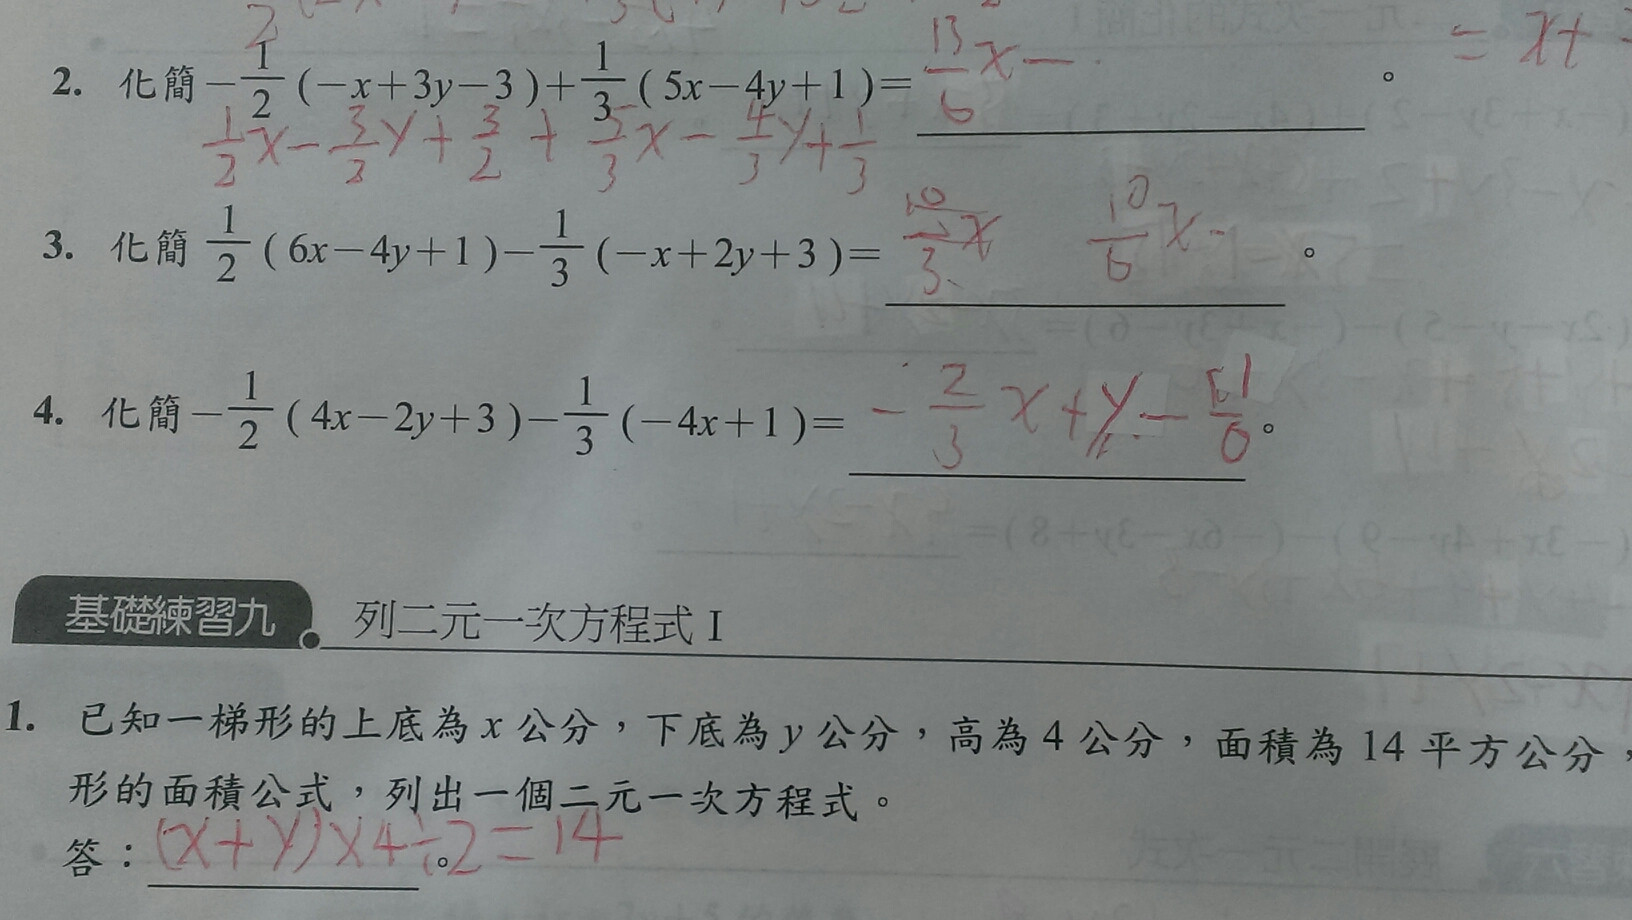 2. 化簡 -\frac{1}{2}(-x+3y-3)+\frac{1}{3}(5x-4y+1)= \frac{13}{6}x- 。
= x+
\frac{1}{2}x-\frac{3}{2}y+\frac{3}{2}+\frac{5}{3}x-\frac{4}{3}y+\frac{1}{3}
3. 化簡 \frac{1}{2}(6x-4y+1)-\frac{1}{3}(-x+2y+3)= \frac{10}{3}x \frac{10}{6}x- 。
4. 化簡 -\frac{1}{2}(4x-2y+3)-\frac{1}{3}(-4x+1)= -\frac{2}{3}x+y- 。
基礎練習九 列二元一次方程式 I
1. 已知一梯形的上底為 x 公分，下底為 y 公分，高為 4 公分，面積為 14 平方公分，
形的面積公式，列出一個二元一次方程式。
答：(x+y)×4÷2=14。